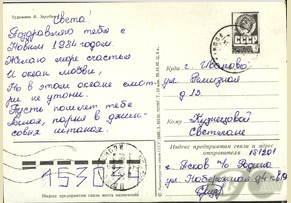 Художник В. Зарубин
Света!
Поздравляю тебя с
Новым 1984 годом.
Желаю море счастья
И океан любви,
Но в этом океане смот-
ри не утони.
Пусть пошлет тебе
Алиса, парня в джин-
совых штанах.
СССР
Куда г. Иваново
ул.
д 13.
Кому Кузнецовой
Светлане
Индекс предприятия связи и адрес
отправителя 181201
г. Псков
ул. Набережная
153034
Индекс предприятия связи места назначения